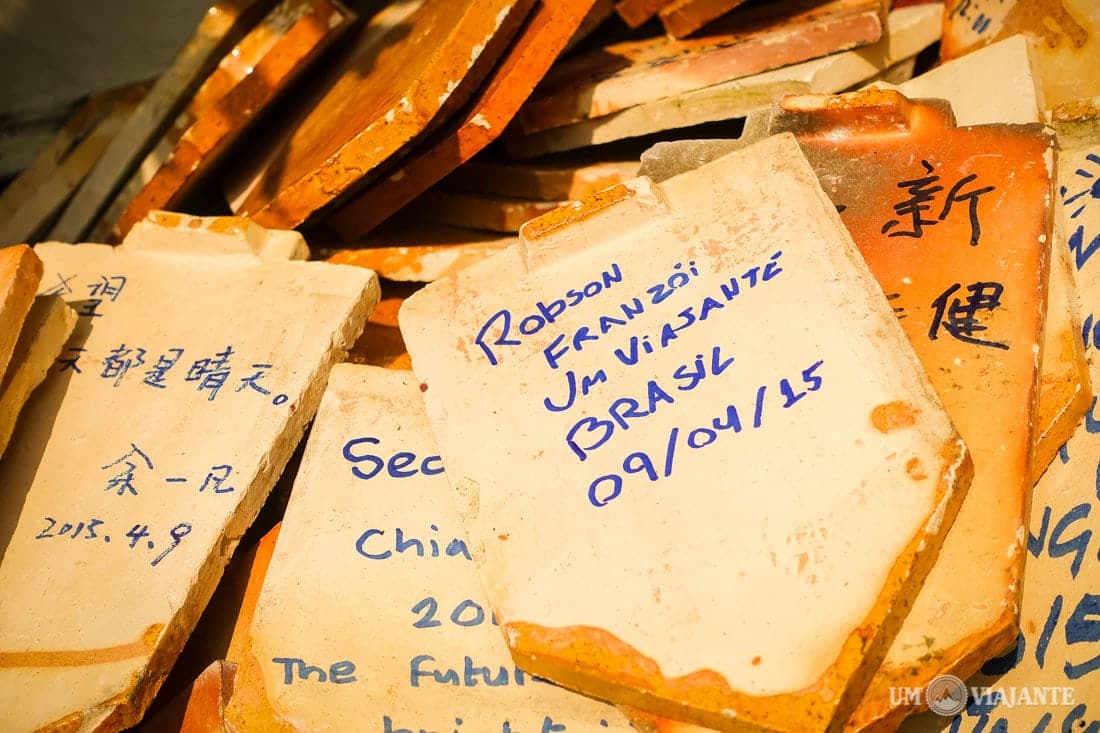 望
天都是晴天。
余一凡
2015.4.9
Sec
Chia
201
The Future
bright
Robson
FRANZói
UM VIAJANTE
BRASIL
09/04/15
新
健
NG
UM VIAJANTE